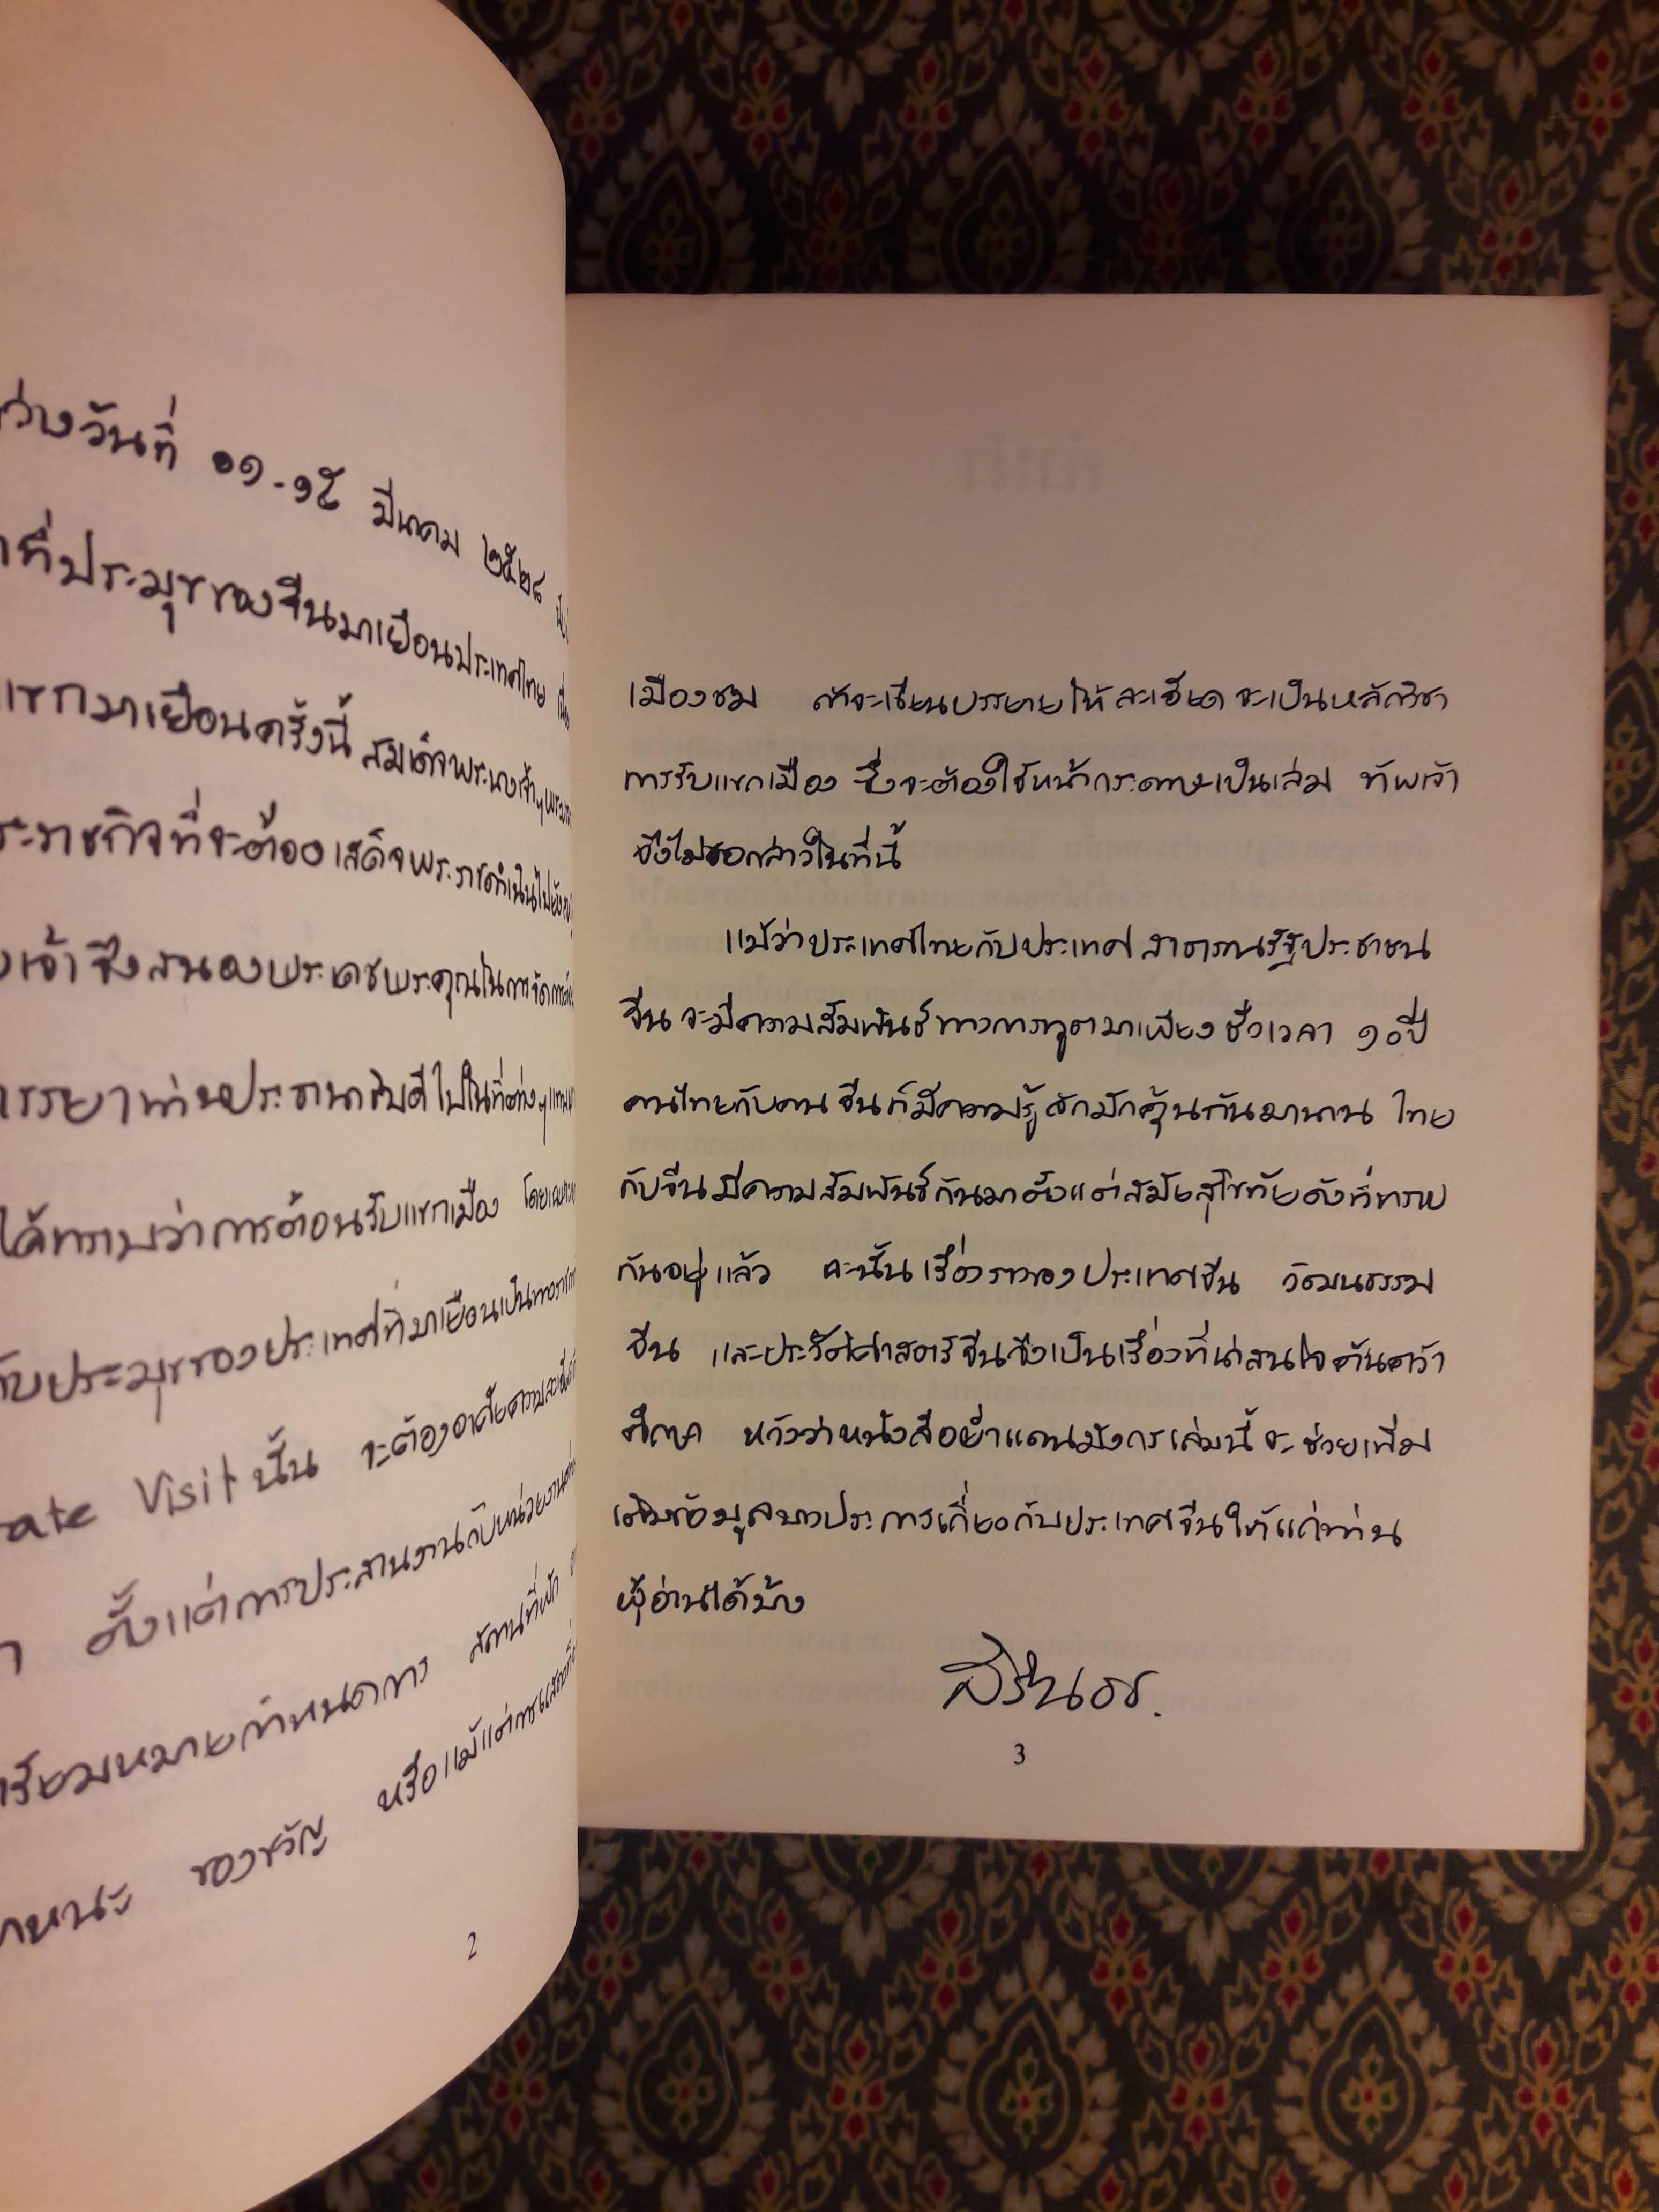 ว่างวันที่ ๑๑-๑๕ มีนาคม ๒๕๒๘
ที่ประมุขของจีนมาเยือนประเทศไทย
แขกมาเยือนครั้งนี้ สมเด็จพระนางเจ้าฯ
ระราชกิจที่จะต้องเสด็จพระราชดำเนินไปยัง
เจ้าจึงสนองพระเดชพระคุณในการจัดการ
รรยาท่านประธานาธิบดีไปในที่ต่างๆ
ได้ทราบว่าการต้อนรับแขกเมือง
ับประมุขของประเทศที่มาเยือนเป็นทางราชการ
ate Visit นั้น จะต้องอาศัยความละเอียด
ตั้งแต่การประสานงานกับหน่วยงาน
เรียมหมายกำหนดการ สถานที่พัก
าหนะ ของขวัญ หรือแม้แต่การแสดง
2
เมืองชม ถ้าจะเขียนบรรยายให้ละเอียด จะเป็นหลักวิชา
การรับแขกเมือง ซึ่งจะต้องใช้หน้ากระดาษเป็นเล่ม ข้าพเจ้า
จึงไม่ขอกล่าวในที่นี้
แม้ว่าประเทศไทยกับประเทศสาธารณรัฐประชาชน
จีนจะมีความสัมพันธ์ทางการทูตมาเพียงชั่วเวลา ๑๐ ปี
คนไทยกับคนจีนก็มีความรู้จักมักคุ้นกันมานาน ไทย
กับจีนมีความสัมพันธ์กันมาตั้งแต่สมัยสุโขทัยดังที่ทราบ
กันอยู่แล้ว ฉะนั้นเรื่องราวของประเทศจีน วัฒนธรรม
จีน และประวัติศาสตร์จีนจึงเป็นเรื่องที่น่าสนใจค้นคว้า
ศึกษา หวังว่าหนังสือย่ำแดนมังกรเล่มนี้จะช่วยเพิ่ม
เติมข้อมูลบางประการเกี่ยวกับประเทศจีนให้แก่ท่าน
ผู้อ่านได้บ้าง
สิรินธร.
3